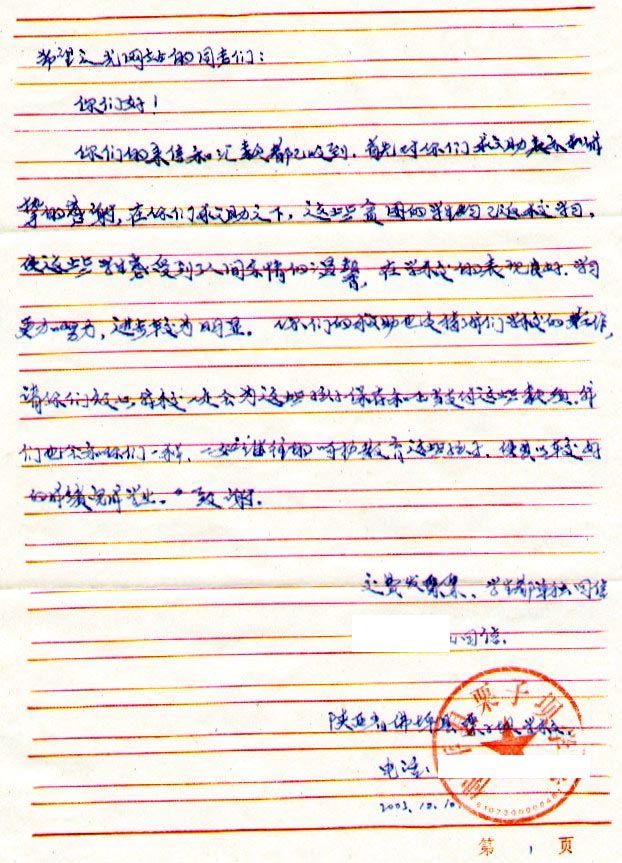 希望之光网站的同志们：
你们好！
你们的来信和汇款都已收到，首先对你们的救助表示诚
挚的感谢，在你们救助之下，这些贫困的学生均已返校学习，
使这些学生感受到了人间亲情的温馨，在学校的表现良好，学习
更加努力，进步较为明显。你们的救助也支持了我们学校的工作，
请你们放心，学校一定会为这些孩子保存和支付这些款项，我
们也会和你们一样，一如既往的呵护教育这些孩子，使其以较好
的成绩完成学业。致谢。
交费发票集、学生都单独回信
回信。
陕西省佛坪县栗子坝学校
电话：
2003.10.10
栗子坝
第 1 页